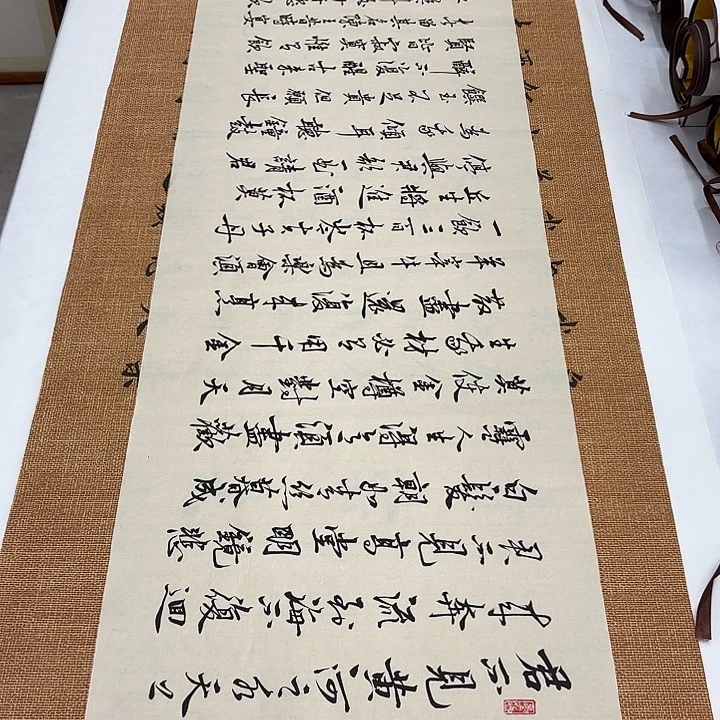 君不見黃河之水天上
来奔流到海不復迴
君不見高堂明鏡悲
白髮朝如青丝暮成
雪人生得意須盡歡
莫使金樽空對月天
生我材必有用千金
散盡還復来烹
羊宰牛且為樂會須
一飲三百杯岑夫子丹
丘生將進酒杯莫
停與君歌一曲請君
為我傾耳聽鐘鼓
饌玉不足貴但願長
醉不復醒古来聖
賢皆寂寞惟有飲
者留其名陳王昔時宴